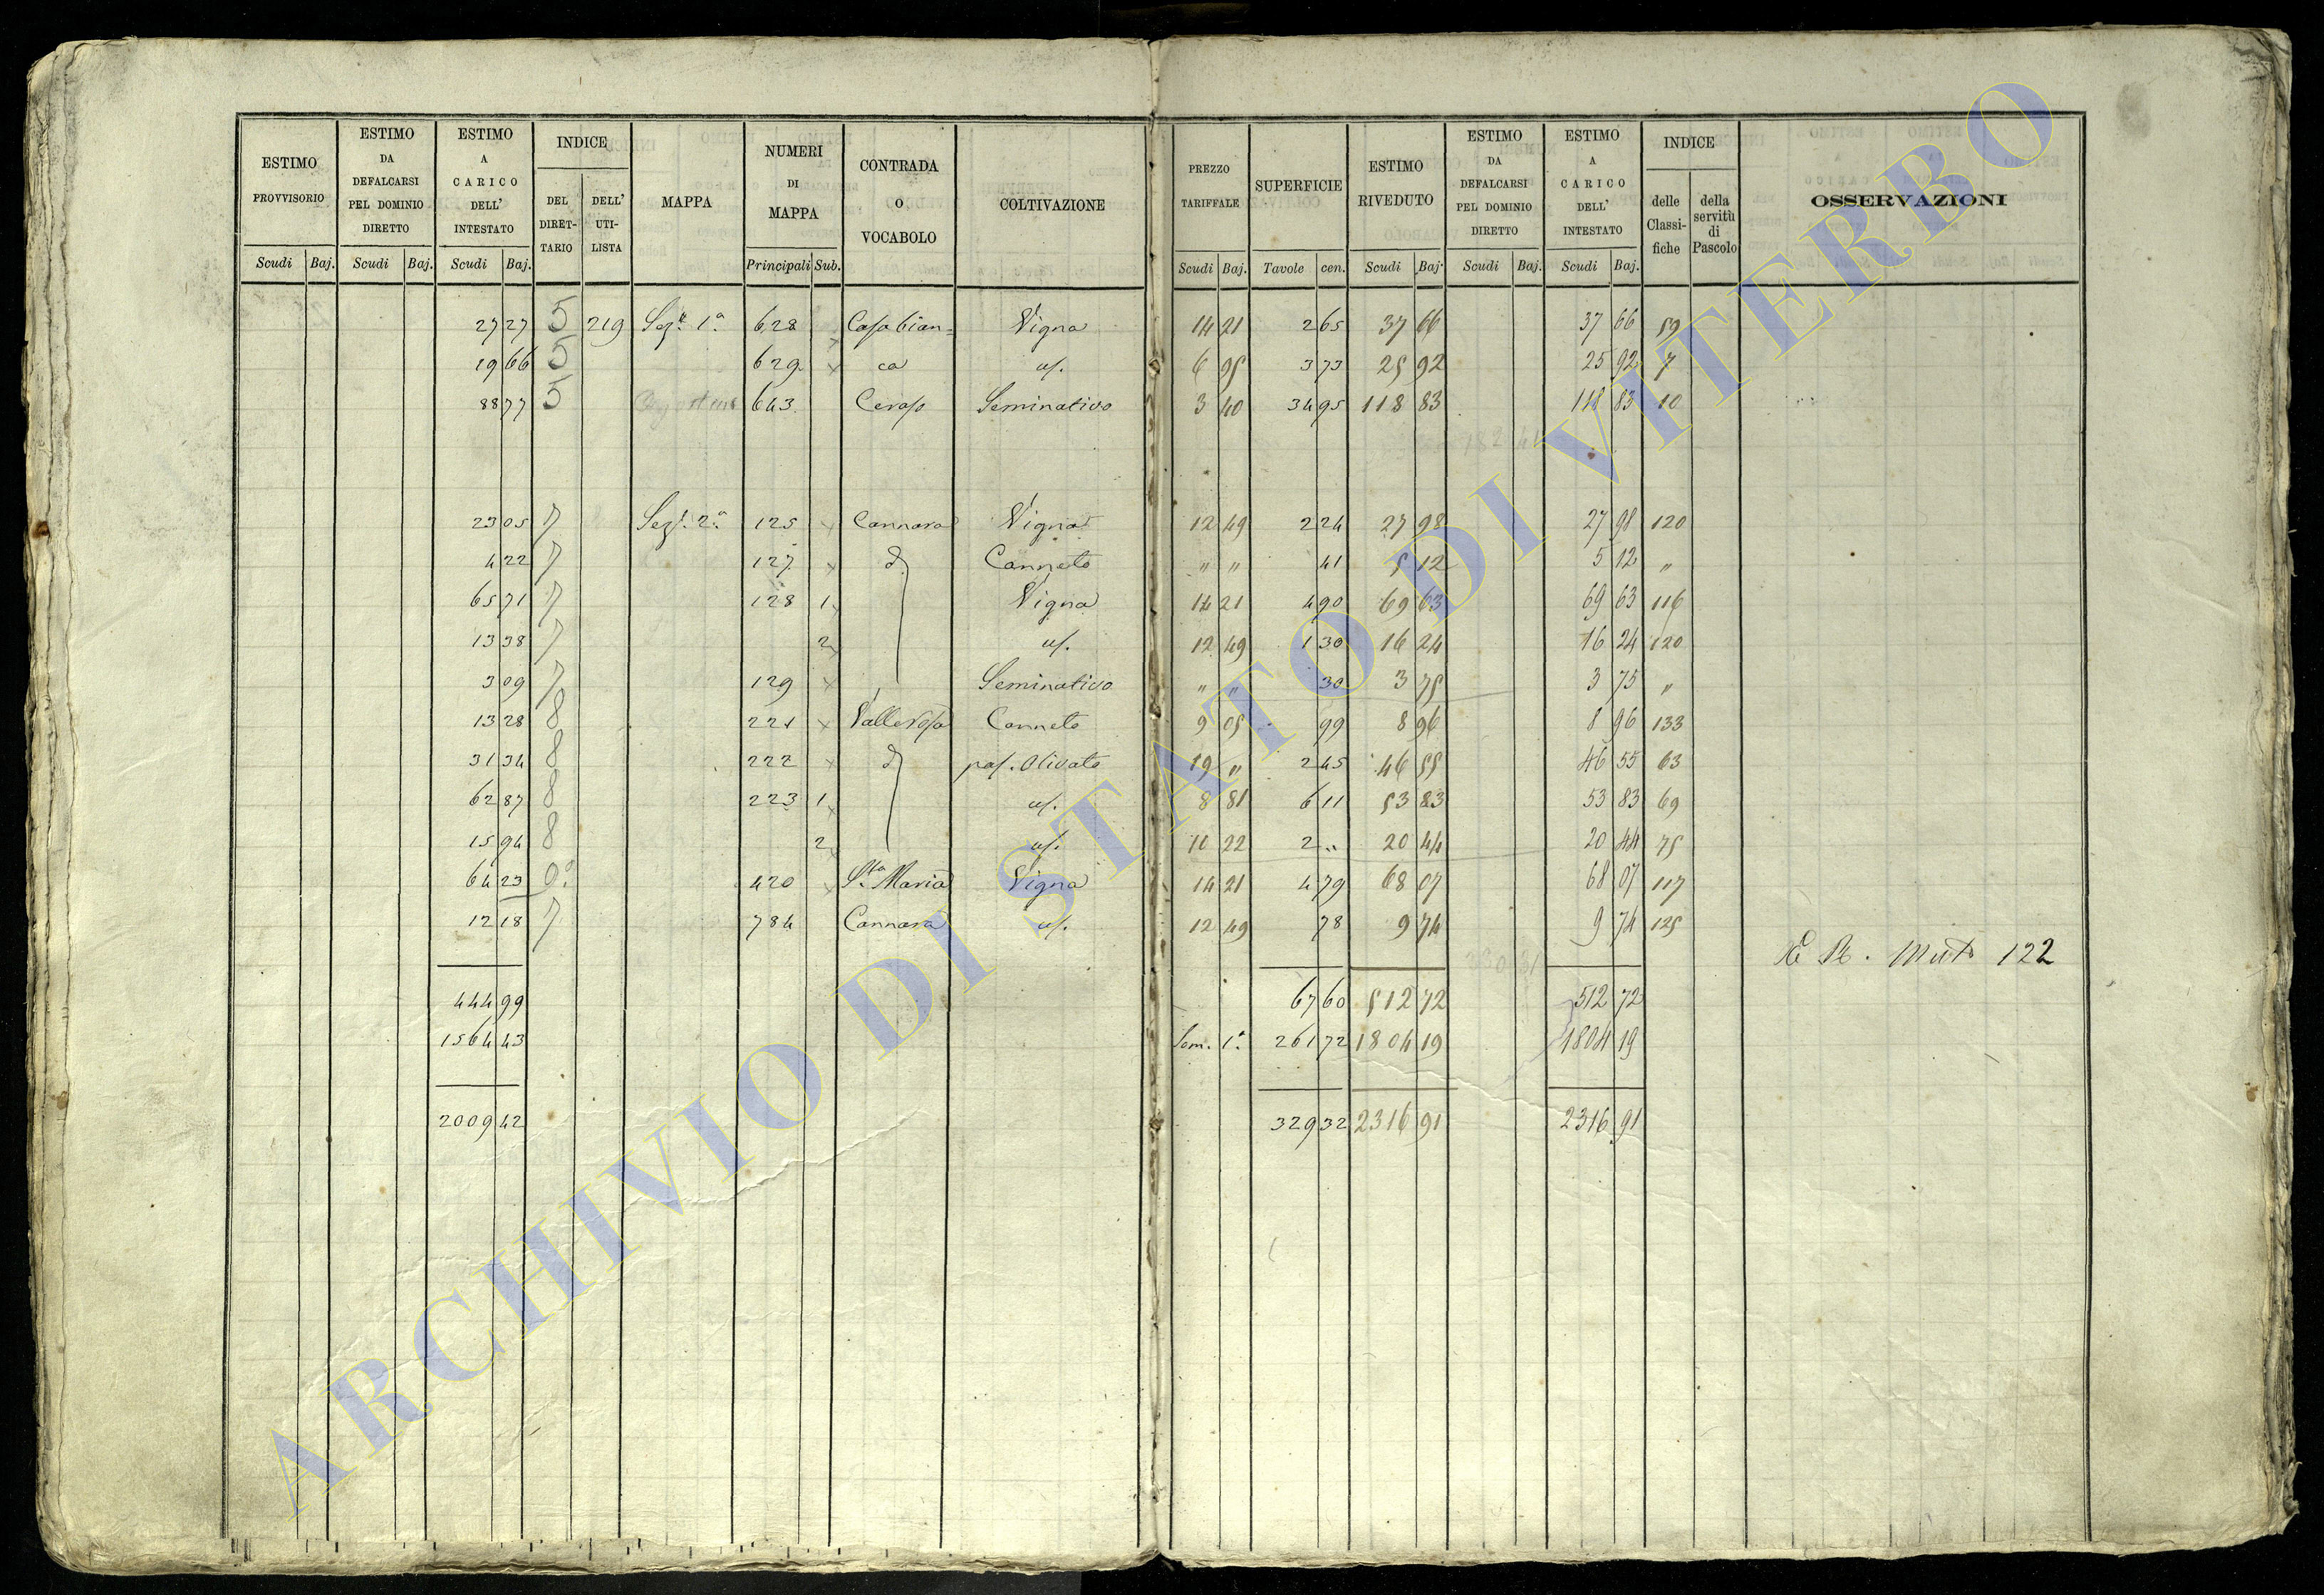 ESTIMO PROVVISORIO | ESTIMO DA DEFALCARSI PEL DOMINIO DIRETTO | ESTIMO A CARICO DELL' INTESTATO | INDICE | MAPPA | NUMERI DI MAPPA | CONTRADA O VOCABOLO | COLTIVAZIONE | PREZZO TARIFFALE | SUPERFICIE | ESTIMO RIVEDUTO | ESTIMO DA DEFALCARSI PEL DOMINIO DIRETTO | ESTIMO A CARICO DELL' INTESTATO | INDICE | OSSERVAZIONI
DEL DIRET-TARIO | DELL' UTI-LISTA | delle Classi-fiche | della servitù di Pascolo
Scudi | Baj. | Scudi | Baj. | Scudi | Baj. | Principali | Sub. | Scudi | Baj. | Tavole | cen. | Scudi | Baj. | Scudi | Baj. | Scudi | Baj.
27 27 5 219 Sez.e 1a 628 Casabian- Vigna 14 21 2 65 37 66 37 66 59
19 66 5 629 ca uf. 6 95 3 73 25 92 25 92 7
88 77 5 643 Ceraso Seminativo 3 40 34 95 118 83 118 83 10
23 05 7 Sez. 2a 125 Cannara Vigna 12 49 2 24 27 98 27 98 120
4 22 7 127 d Canneto " " 41 5 12 5 12 "
65 71 7 128 1 Vigna 14 21 4 90 69 63 69 63 116
13 38 7 2 uf. 12 49 1 30 16 24 16 24 120
3 09 7 129 Seminativo " " 30 3 75 3 75 "
13 28 8 221 Vallerosa Canneto 9 05 99 8 96 8 96 133
31 34 8 222 d pas. Olivato 19 " 2 45 46 55 46 55 63
62 87 8 223 1 uf. 8 81 6 11 53 83 53 83 69
15 94 8 2 uf. 10 22 2 " 20 44 20 44 75
64 23 9 420 S.ta Maria Vigna 14 21 4 79 68 07 68 07 117
12 18 7 784 Cannara uf. 12 49 78 9 74 9 74 125
Mut. 122
444 99 67 60 512 72 512 72
1564 43 Som. 1a 261 72 1804 19 1804 19
2009 42 329 32 2316 91 2316 91
ARCHIVIO DI STATO DI VITERBO